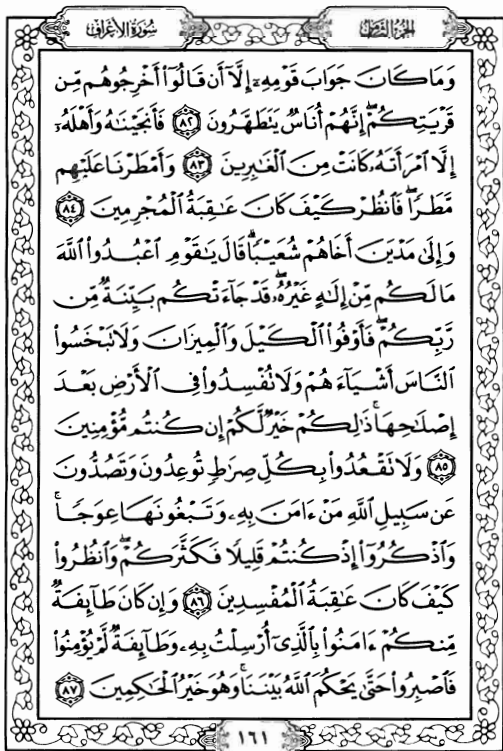 سُورَةُ الأَعْرَافِ
الجُزْءُ الثَّامِنُ
وَمَا كَانَ جَوَابَ قَوْمِهِۦٓ إِلَّآ أَن قَالُوٓا۟ أَخْرِجُوهُم مِّن
قَرْيَتِكُمْ ۖ إِنَّهُمْ أُنَاسٌ يَتَطَهَّرُونَ ﴿٨٢﴾ فَأَنجَيْنَـٰهُ وَأَهْلَهُۥٓ
إِلَّا ٱمْرَأَتَهُۥ كَانَتْ مِنَ ٱلْغَـٰبِرِينَ ﴿٨٣﴾ وَأَمْطَرْنَا عَلَيْهِم
مَّطَرًا ۖ فَٱنظُرْ كَيْفَ كَانَ عَـٰقِبَةُ ٱلْمُجْرِمِينَ ﴿٨٤﴾
وَإِلَىٰ مَدْيَنَ أَخَاهُمْ شُعَيْبًا ۗ قَالَ يَـٰقَوْمِ ٱعْبُدُوا۟ ٱللَّهَ
مَا لَكُم مِّنْ إِلَـٰهٍ غَيْرُهُۥ ۖ قَدْ جَآءَتْكُم بَيِّنَةٌ مِّن
رَّبِّكُمْ ۖ فَأَوْفُوا۟ ٱلْكَيْلَ وَٱلْمِيزَانَ وَلَا تَبْخَسُوا۟
ٱلنَّاسَ أَشْيَآءَهُمْ وَلَا تُفْسِدُوا۟ فِى ٱلْأَرْضِ بَعْدَ
إِصْلَـٰحِهَا ۚ ذَٰلِكُمْ خَيْرٌ لَّكُمْ إِن كُنتُم مُّؤْمِنِينَ
﴿٨٥﴾ وَلَا تَقْعُدُوا۟ بِكُلِّ صِرَٰطٍ تُوعِدُونَ وَتَصُدُّونَ
عَن سَبِيلِ ٱللَّهِ مَنْ ءَامَنَ بِهِۦ وَتَبْغُونَهَا عِوَجًا ۚ
وَٱذْكُرُوٓا۟ إِذْ كُنتُمْ قَلِيلًا فَكَثَّرَكُمْ ۖ وَٱنظُرُوا۟
كَيْفَ كَانَ عَـٰقِبَةُ ٱلْمُفْسِدِينَ ﴿٨٦﴾ وَإِن كَانَ طَآئِفَةٌ
مِّنكُمْ ءَامَنُوا۟ بِٱلَّذِىٓ أُرْسِلْتُ بِهِۦ وَطَآئِفَةٌ لَّمْ يُؤْمِنُوا۟
فَٱصْبِرُوا۟ حَتَّىٰ يَحْكُمَ ٱللَّهُ بَيْنَنَا ۚ وَهُوَ خَيْرُ ٱلْحَـٰكِمِينَ ﴿٨٧﴾
١٦١